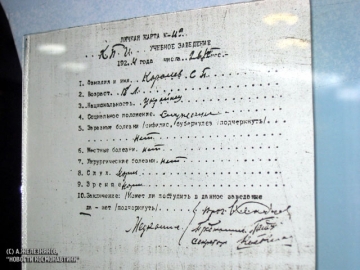 ЛИЧНАЯ КАРТА № 42
К.П.И. УЧЕБНОЕ ЗАВЕДЕНИЕ
1924 года числа
1. Фамилия и имя. Королев С.П.
2. Возраст. 18 л.
3. Национальность. украинец
4. Социальное положение. Служащий
5. Заразное болезни /сифилис, туберкулез /подчеркнуть/.
нет
6. Местные болезни. нет
7. Хирургические болезни. нет
8. Слух. норм.
9. Зрение норм
10. Заключение: /Может ли поступить в данное заведение
да - нет /подчеркнуть/.
(C) А.ЖЕЛЕЗНЯКОВ.
"НОВОСТИ КОСМОНАВТИКИ"